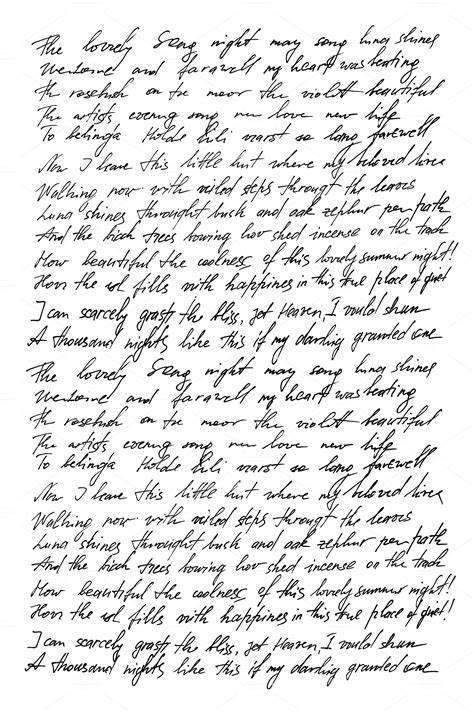 The lovely Song night may song luna shines
Welcome and farawell my heart was beating
th rosebush on the moor the violett beautiful
The artists evening song new love new life
To belinda Holde Lili warst so lang farewell
Now I leave this little hut where my beloved lives
Walking now with veiled steps througt the leaves
Luna shines throught bush and oak zephur per path
And the birch trees bowing low shed incense on the track
How beautiful the coolness of this lovely summer night!
How the soul fills with happines in this true place of quiet
I can scarcely grasp the bliss, jet Heaven, I would shun
A thousand nights like this if my darling granted one
The lovely Song night may song luna shines
Welcome and farawell my heart was beating
th rosebush on the moor the violett beautiful
The artists evening song new love new life
To belinda Holde Lili warst so lang farewell
Now I leave this little hut where my beloved lives
Walking now with veiled steps througt the leaves
Luna shines throught bush and oak zephur per path
And the birch trees bowing low shed incense on the track
How beautiful the coolness of this lovely summer night!
How the soul fills with happines in this true place of quiet!
I can scarcely grasp the bliss, jet Heaven, I would shun
A thousand nights like this if my darling granted one